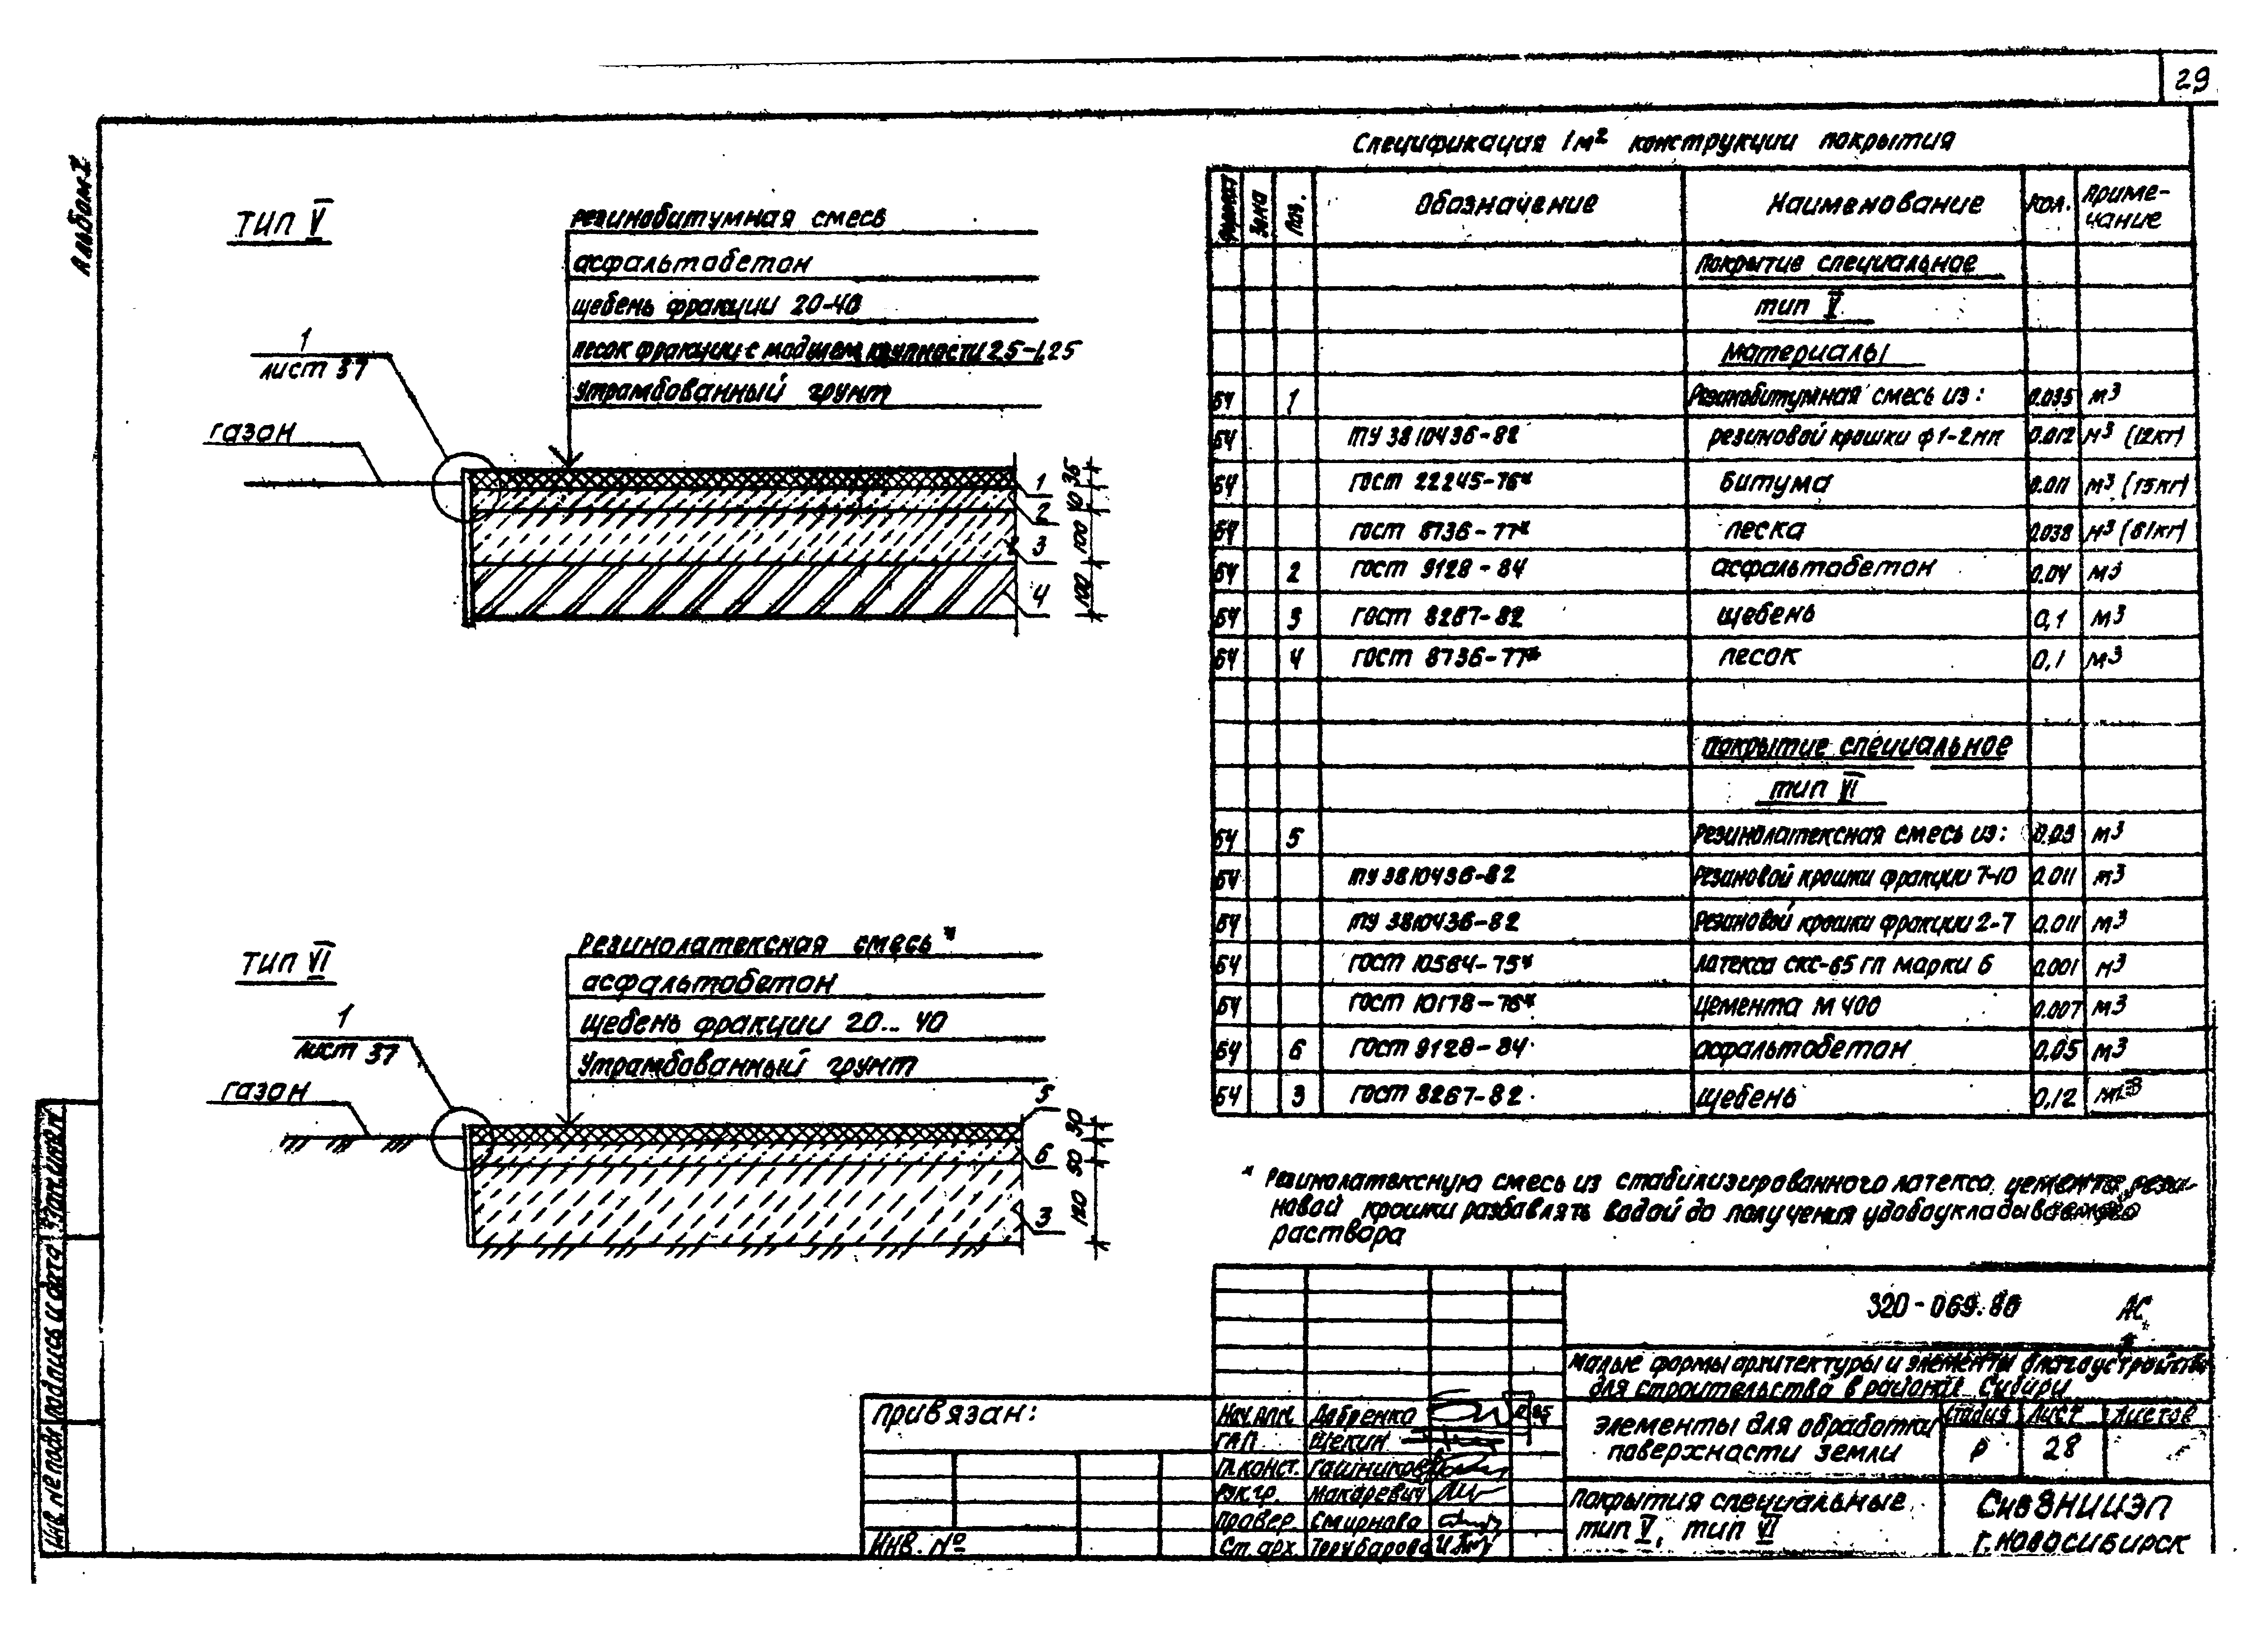 29
Альбом I
Спецификация 1м² конструкции покрытия
тип V
резинобитумная смесь
асфальтобетон
щебень фракции 20-40
песок фракции с модулем крупности 2.5-1,25
утрамбованный грунт
1
лист 37
газон
1
2
3
4
35
40
100
100
тип VI
резинолатексная смесь*
асфальтобетон
щебень фракции 20...40
утрамбованный грунт
1
лист 37
газон
5
6
3
30
50
120
Формат Зона Поз. Обозначение Наименование Кол. Приме-
чание
Покрытие специальное
тип V
материалы
БЧ 1 Резинобитумная смесь из: 0.035 м³
БЧ ТУ 3810436-82 резиновой крошки ф 1-2мм 0.012 м³ (12кг)
БЧ ГОСТ 22245-76* битума 0.011 м³ (15кг)
БЧ ГОСТ 8736-77* песка 0.038 м³ (61кг)
БЧ 2 ГОСТ 9128-84 асфальтобетон 0.04 м³
БЧ 3 ГОСТ 8267-82 щебень 0,1 м³
БЧ 4 ГОСТ 8736-77* песок 0,1 м³
покрытие специальное
тип VI
БЧ 5 Резинолатексная смесь из: 0.03 м³
БЧ ТУ 3810436-82 Резиновой крошки фракции 7-10 0.011 м³
БЧ ТУ 3810436-82 Резиновой крошки фракции 2-7 0.011 м³
БЧ ГОСТ 10564-75* латекса СКС-65 гп марки б 0.001 м³
БЧ ГОСТ 10178-76* цемента М 400 0.007 м³
БЧ 6 ГОСТ 9128-84 асфальтобетон 0,05 м³
БЧ 3 ГОСТ 8267-82 щебень 0,12 м³
* Резинолатексную смесь из стабилизированного латекса, цемента, рези-
новой крошки разбавлять водой до получения удобоукладываемого
раствора
320-069.86 АС
малые формы архитектуры и элементы благоустройства
для строительства в районах Сибири
элементы для обработки
поверхности земли
стадия лист листов
Р 28
покрытия специальные
тип V, тип VI
СибЗНИИЭП
г. Новосибирск
привязан:
Инв. №
Нач.АПМ
ГАП Щекин
Гл.конст.
Рук.гр. Макаревич
Провер. Смирнова
Ст. арх.
Инв. № подл. подпись и дата Взам.инв.№